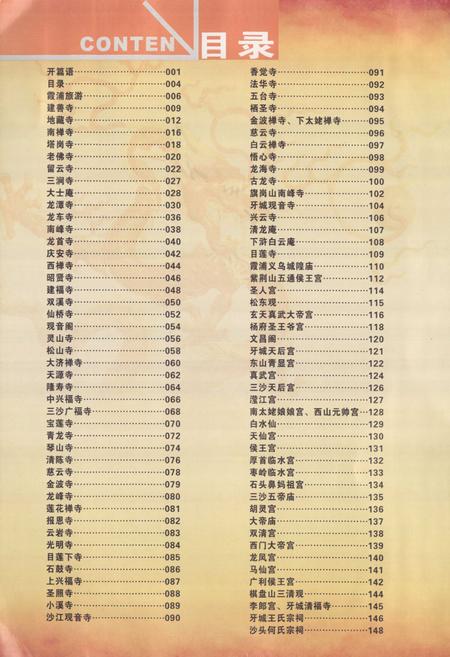 CONTEN 目录
开篇语 001
目录 004
霞浦旅游 006
建善寺 009
地藏寺 012
南禅寺 016
塔岗寺 018
老佛寺 020
留云寺 022
三涧寺 027
大士庵 028
龙潭寺 030
龙车寺 036
南峰寺 038
龙首寺 040
庆安寺 042
西禅寺 044
昭贤寺 046
建福寺 048
双溪寺 050
仙桥寺 052
观音阁 054
灵山寺 056
松山寺 058
大济禅寺 060
天源寺 062
隆寿寺 064
中兴福寺 066
三沙广福寺 068
宝莲寺 070
青龙寺 072
琴山寺 074
清陈寺 076
慈云寺 078
金波寺 079
龙峰寺 080
莲花禅寺 081
报恩寺 082
云岩寺 083
光明寺 084
目莲下寺 085
石鼓寺 086
上兴福寺 087
圣照寺 088
小溪寺 089
沙江观音寺 090
香觉寺 091
法华寺 092
五台寺 093
栖圣寺 094
金波禅寺、下太姥禅寺 095
慈云寺 096
白云禅寺 097
悟心寺 098
龙海寺 099
古龙寺 100
旗岗山南峰寺 102
牙城观音寺 104
兴云寺 106
清龙庵 107
下浒白云庵 108
目莲寺 109
霞浦义乌城隍庙 110
紫荆山五通侯王宫 112
圣人宫 114
松东观 115
玄天真武大帝宫 116
杨府圣王爷宫 118
文昌阁 120
牙城天后宫 121
东山青显宫 122
真武宫 124
三沙天后宫 126
滢江宫 127
南太姥娘娘宫、西山元帅宫 128
白水仙 129
天仙宫 130
侯王宫 131
厚首临水宫 132
枣岭临水宫 133
石头鼻妈祖宫 134
三沙五帝庙 135
胡灵宫 136
大帝庙 137
双清宫 138
西门大帝宫 139
龙凤宫 140
马仙宫 141
广利侯王宫 142
棋盘山三清观 144
李郎宫、牙城清福寺 145
牙城王氏宗祠 146
沙头何氏宗祠 148